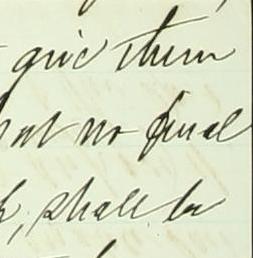 give them
hat no final
k, shall be